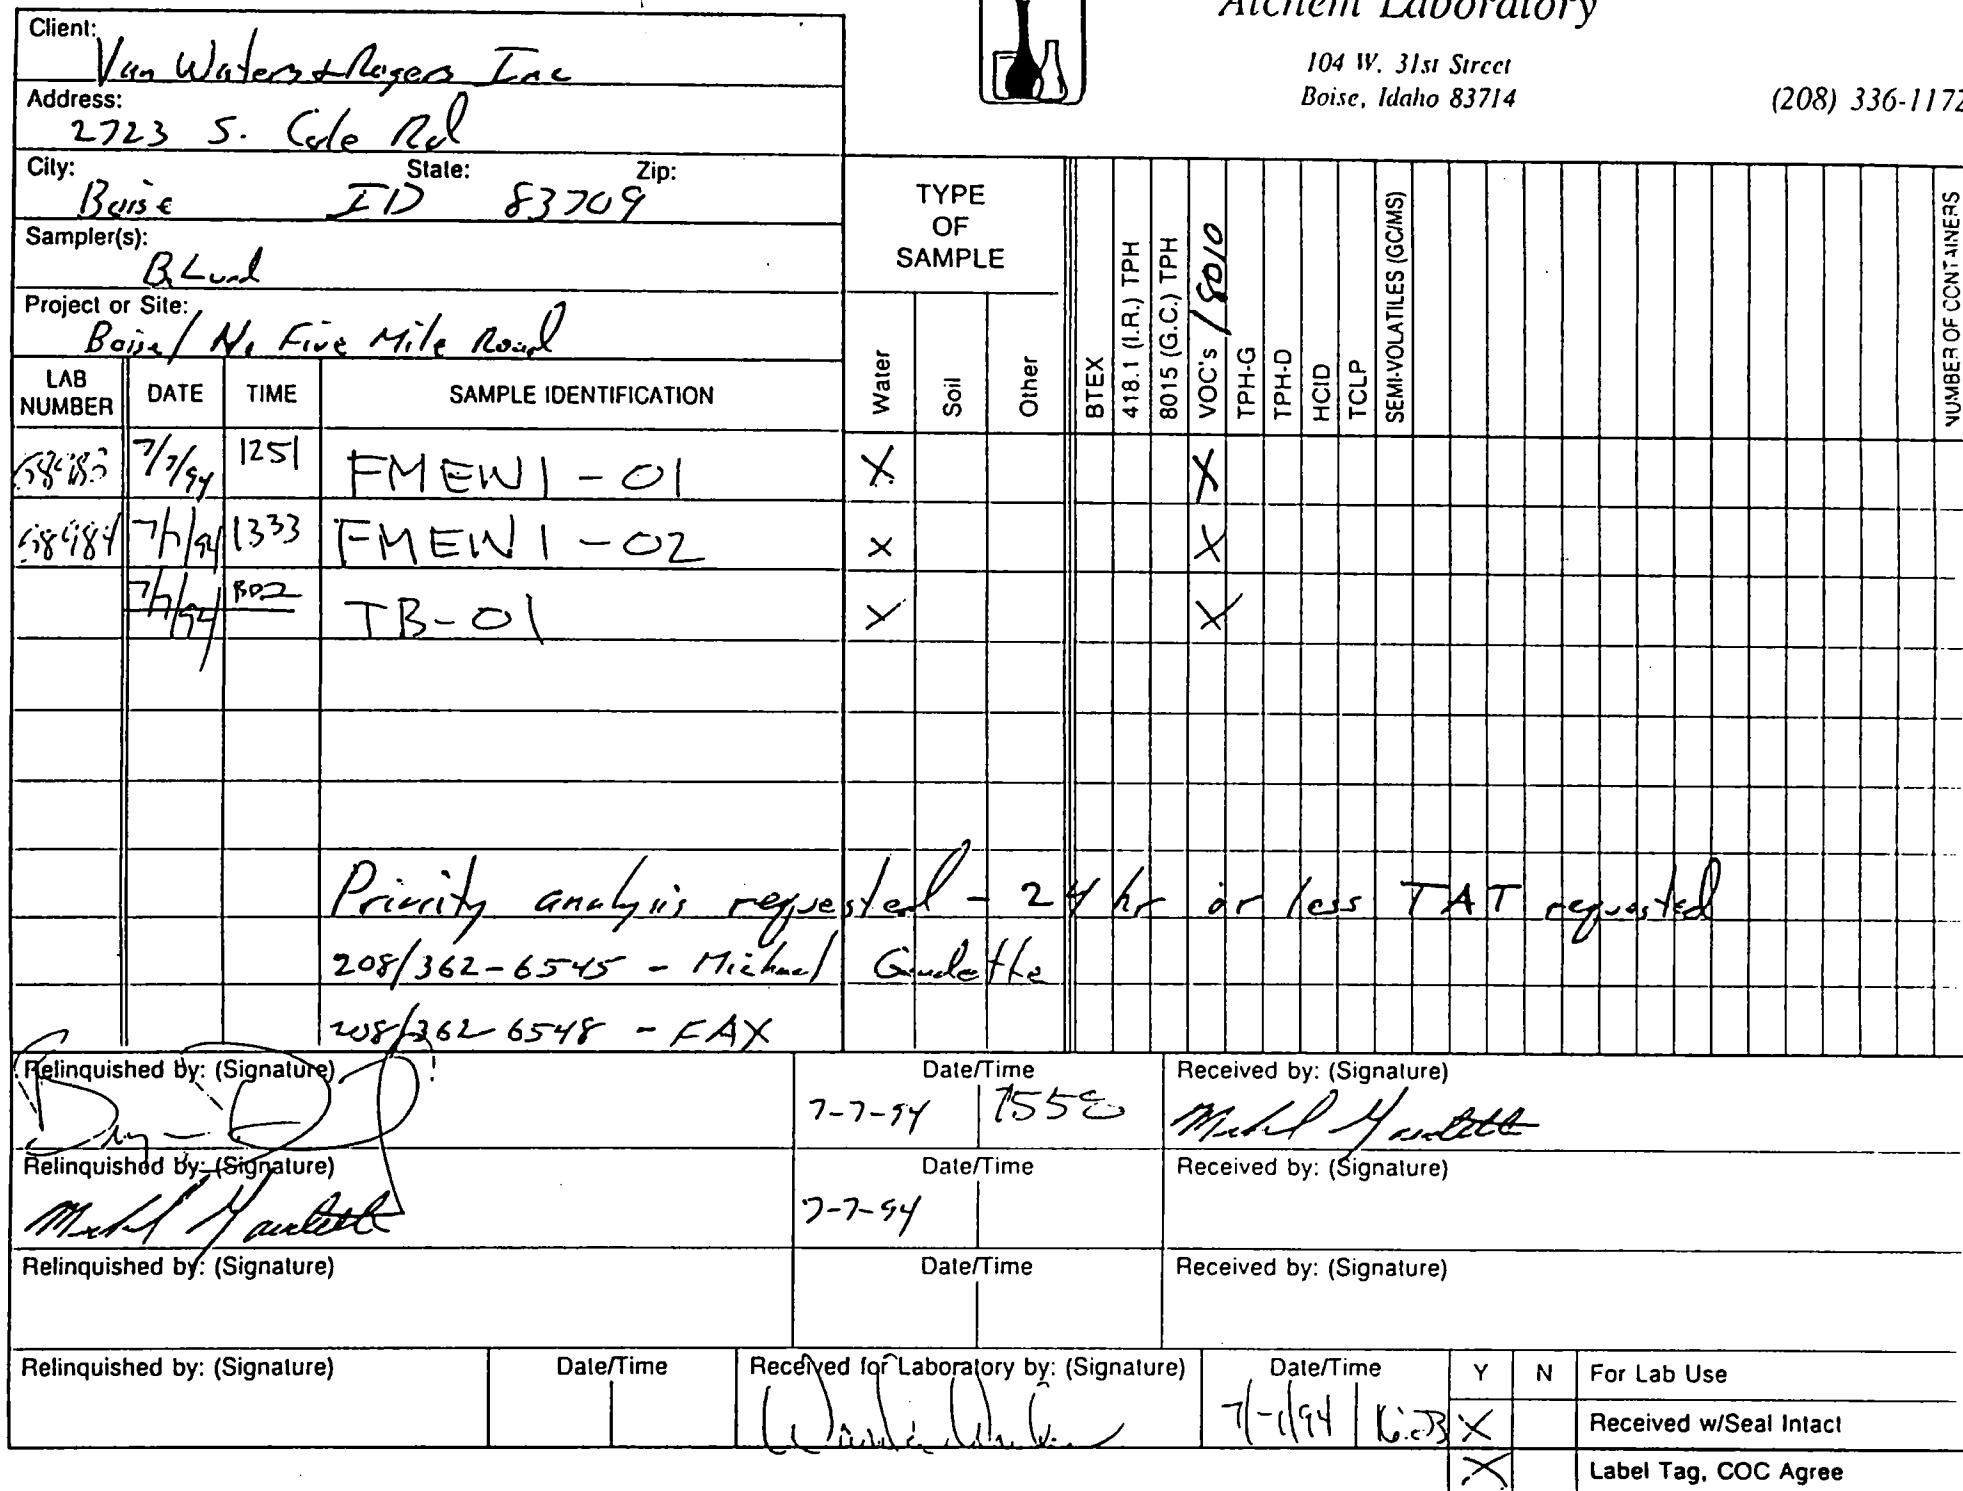 Alchem Laboratory
104 W. 31st Street
Boise, Idaho 83714
(208) 336-1172
Client:
Van Waters & Rogers Inc
Address:
2723 S. Cole Rd
City: State: Zip:
Boise ID 83709
Sampler(s):
B. Lund
Project or Site:
Boise / N. Five Mile Road
LAB NUMBER DATE TIME SAMPLE IDENTIFICATION
TYPE OF SAMPLE
Water Soil Other
BTEX
418.1 (I.R.) TPH
8015 (G.C.) TPH
VOC's / 8010
TPH-G
TPH-D
HCID
TCLP
SEMI-VOLATILES (GC/MS)
NUMBER OF CONTAINERS
7/7/94 1251 FMEW1-01 X X
7/7/94 1333 FMEW1-02 X X
7/7/94 TB-01 X X
Priority analysis requested - 24 hr or less TAT requested
208/362-6545 - Michael Gaudette
208/362-6548 - FAX
Relinquished by: (Signature) Date/Time Received by: (Signature)
7-7-94 1558 Michael Gaudette
Relinquished by: (Signature) Date/Time Received by: (Signature)
Michael Gaudette 7-7-94
Relinquished by: (Signature) Date/Time Received by: (Signature)
Relinquished by: (Signature) Date/Time Received for Laboratory by: (Signature) Date/Time Y N For Lab Use
7/7/94 X Received w/Seal Intact
X Label Tag, COC Agree